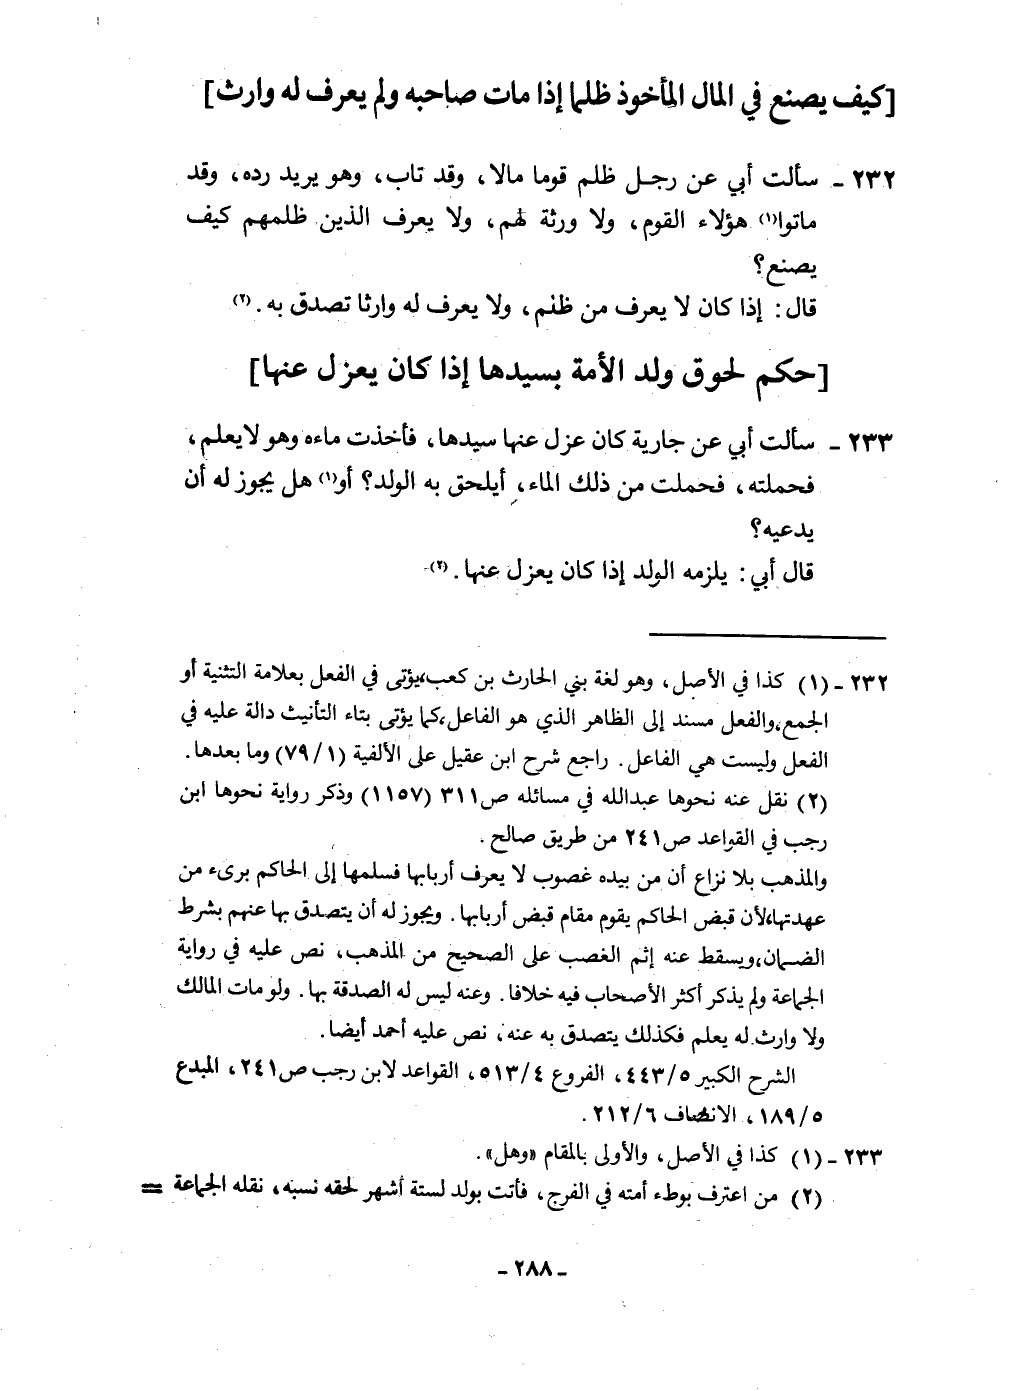 [كيف يصنع في المال المأخوذ ظلما إذا مات صاحبه ولم يعرف له وارث]
٢٣٢ ـ سألت أبي عن رجل ظلم قوما مالا، وقد تاب، وهو يريد رده، وقد
ماتوا(١) هؤلاء القوم، ولا ورثة لهم، ولا يعرف الذين ظلمهم كيف
يصنع؟
قال: إذا كان لا يعرف من ظلم، ولا يعرف له وارثا تصدق به. (٢)
[حكم لحوق ولد الأمة بسيدها إذا كان يعزل عنها]
٢٣٣ ـ سألت أبي عن جارية كان عزل عنها سيدها، فأخذت ماءه وهو لايعلم،
فحملته، فحملت من ذلك الماء، أيلحق به الولد؟ أو(١) هل يجوز له أن
يدعيه؟
قال أبي: يلزمه الولد إذا كان يعزل عنها. (٢)
٢٣٢ ـ (١) كذا في الأصل، وهو لغة بني الحارث بن كعب،يؤتى في الفعل بعلامة التثنية أو
الجمع،والفعل مسند إلى الظاهر الذي هو الفاعل،كما يؤتى بتاء التأنيث دالة عليه في
الفعل وليست هي الفاعل. راجع شرح ابن عقيل على الألفية (٧٩/١) وما بعدها.
(٢) نقل عنه نحوها عبدالله في مسائله ص٣١١ (١١٥٧) وذكر رواية نحوها ابن
رجب في القواعد ص٢٤١ من طريق صالح.
والمذهب بلا نزاع أن من بيده غصوب لا يعرف أربابها فسلمها إلى الحاكم برىء من
عهدتها،لأن قبض الحاكم يقوم مقام قبض أربابها. ويجوز له أن يتصدق بها عنهم بشرط
الضمان،ويسقط عنه إثم الغصب على الصحيح من المذهب، نص عليه في رواية
الجماعة ولم يذكر أكثر الأصحاب فيه خلافا. وعنه ليس له الصدقة بها. ولو مات المالك
ولا وارث له يعلم فكذلك يتصدق به عنه، نص عليه أحمد أيضا.
الشرح الكبير ٤٤٣/٥، الفروع ٥١٣/٤، القواعد لابن رجب ص٢٤١، المبدع
١٨٩/٥، الانصاف ٢١٢/٦.
٢٣٣ ـ (١) كذا في الأصل، والأولى بالمقام «وهل».
(٢) من اعترف بوطء أمته في الفرج، فأتت بولد لستة أشهر لحقه نسبه، نقله الجماعة =
ـ ٢٨٨ ـ